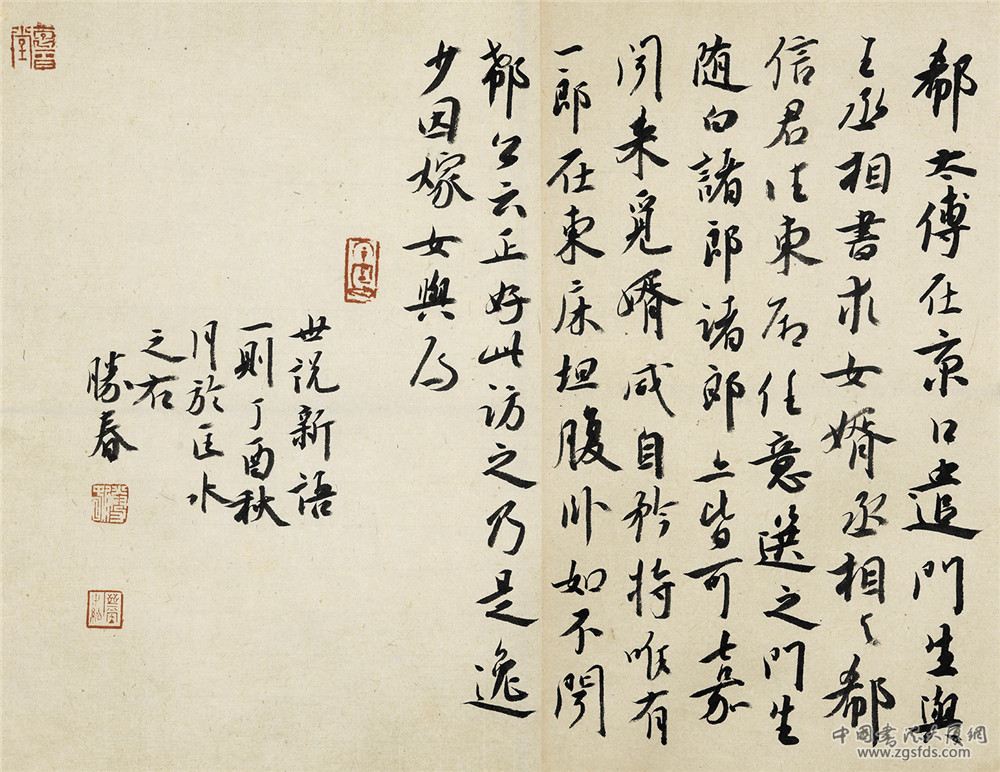 郗太傅在京口遣門生與
王丞相書求女婿丞相々郗
信君往東厢任意選之門生
随白諸郎諸郎亦皆可嘉
闻来覓婿咸自矜持唯有
一郎在東床坦腹卧如不闻
郗公云正好此访之乃是逸
少因嫁女與焉
世说新語
一则丁酉秋
月於匡水
之右
勝春
中国書法英展網
www.zgsfds.com